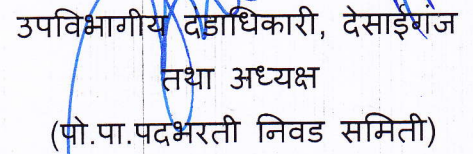 उपविभागीय दंडाधिकारी, देसाईगंज
तथा अध्यक्ष
(पो.पा.पदभरती निवड समिती)